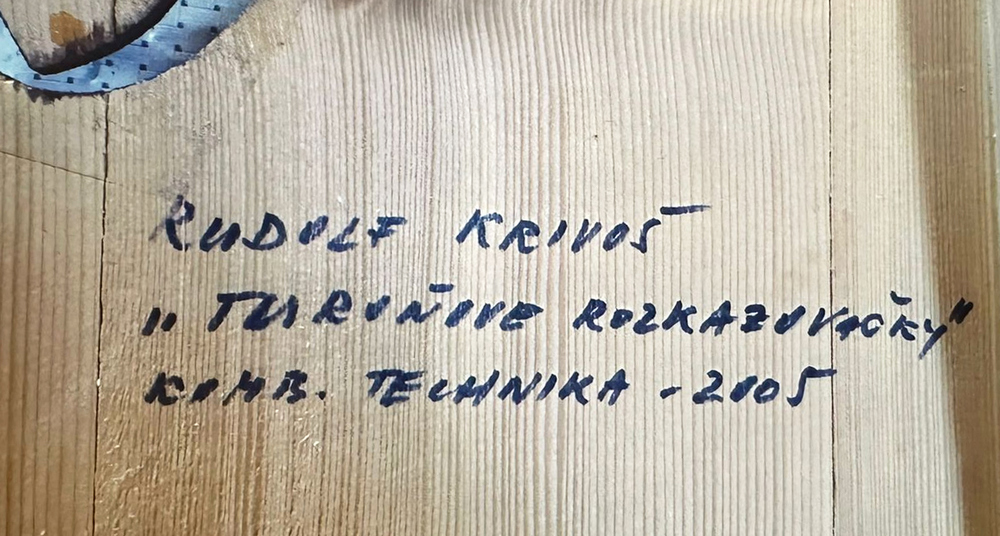 RUDOLF KRIVOŠ
" ROZKAZOVAČKY"
KOMB. TECHNIKA - 2005